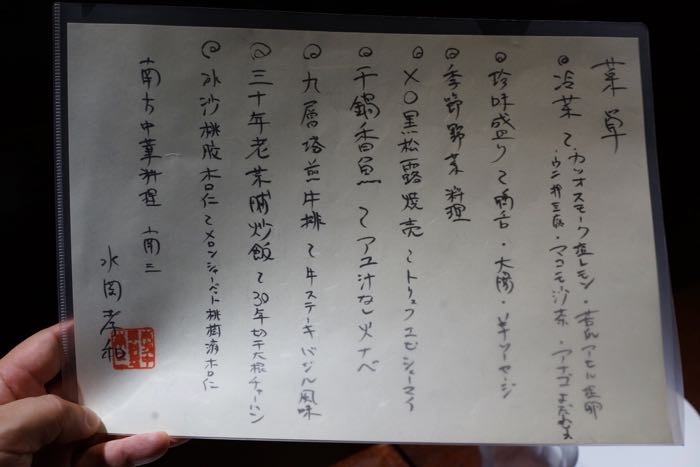 菜単
◎冷菜 て カツオスモーク塩レモン・
・マコモ沙茶・アナゴよだれ
◎珍味盛り て 鴨舌・大腸・羊ソーセージ
◎季節野菜料理
◎XO黒松露焼売 て トリュフエビシューマイ
◎干鍋香魚 て アユ汁なし火ナベ
◎九層塔煎牛排 て 牛ステーキバジル風味
◎三十年老菜脯炒飯 て 30年切干大根チャーハン
◎冰沙桃胶杏仁 て メロンシャーベット桃樹液杏仁
南方中華料理 南三
水岡孝和